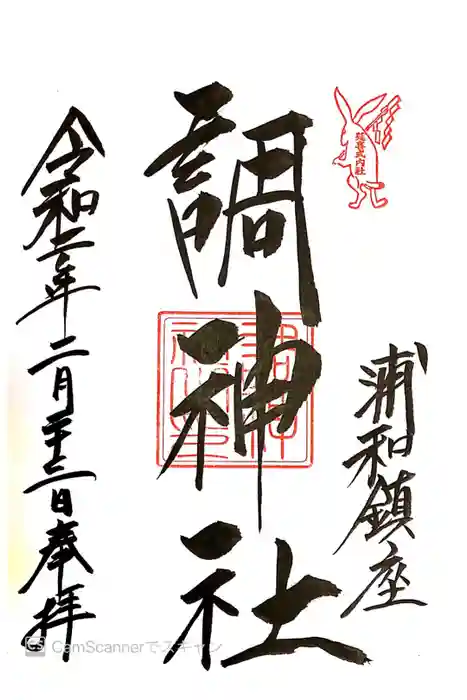 延喜式内社
浦和鎮座
調神社
令和二年二月二十三日奉拝
CS CamScannerでスキャン